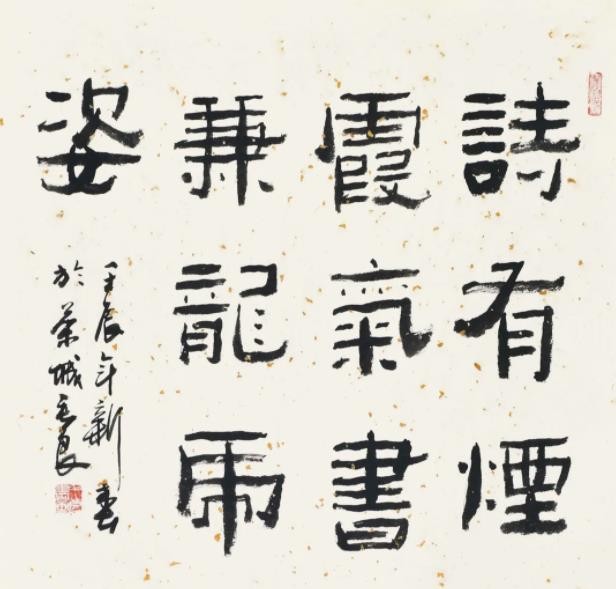 詩有煙
霞氣書
兼龍虎
姿
壬辰年新春
於城良